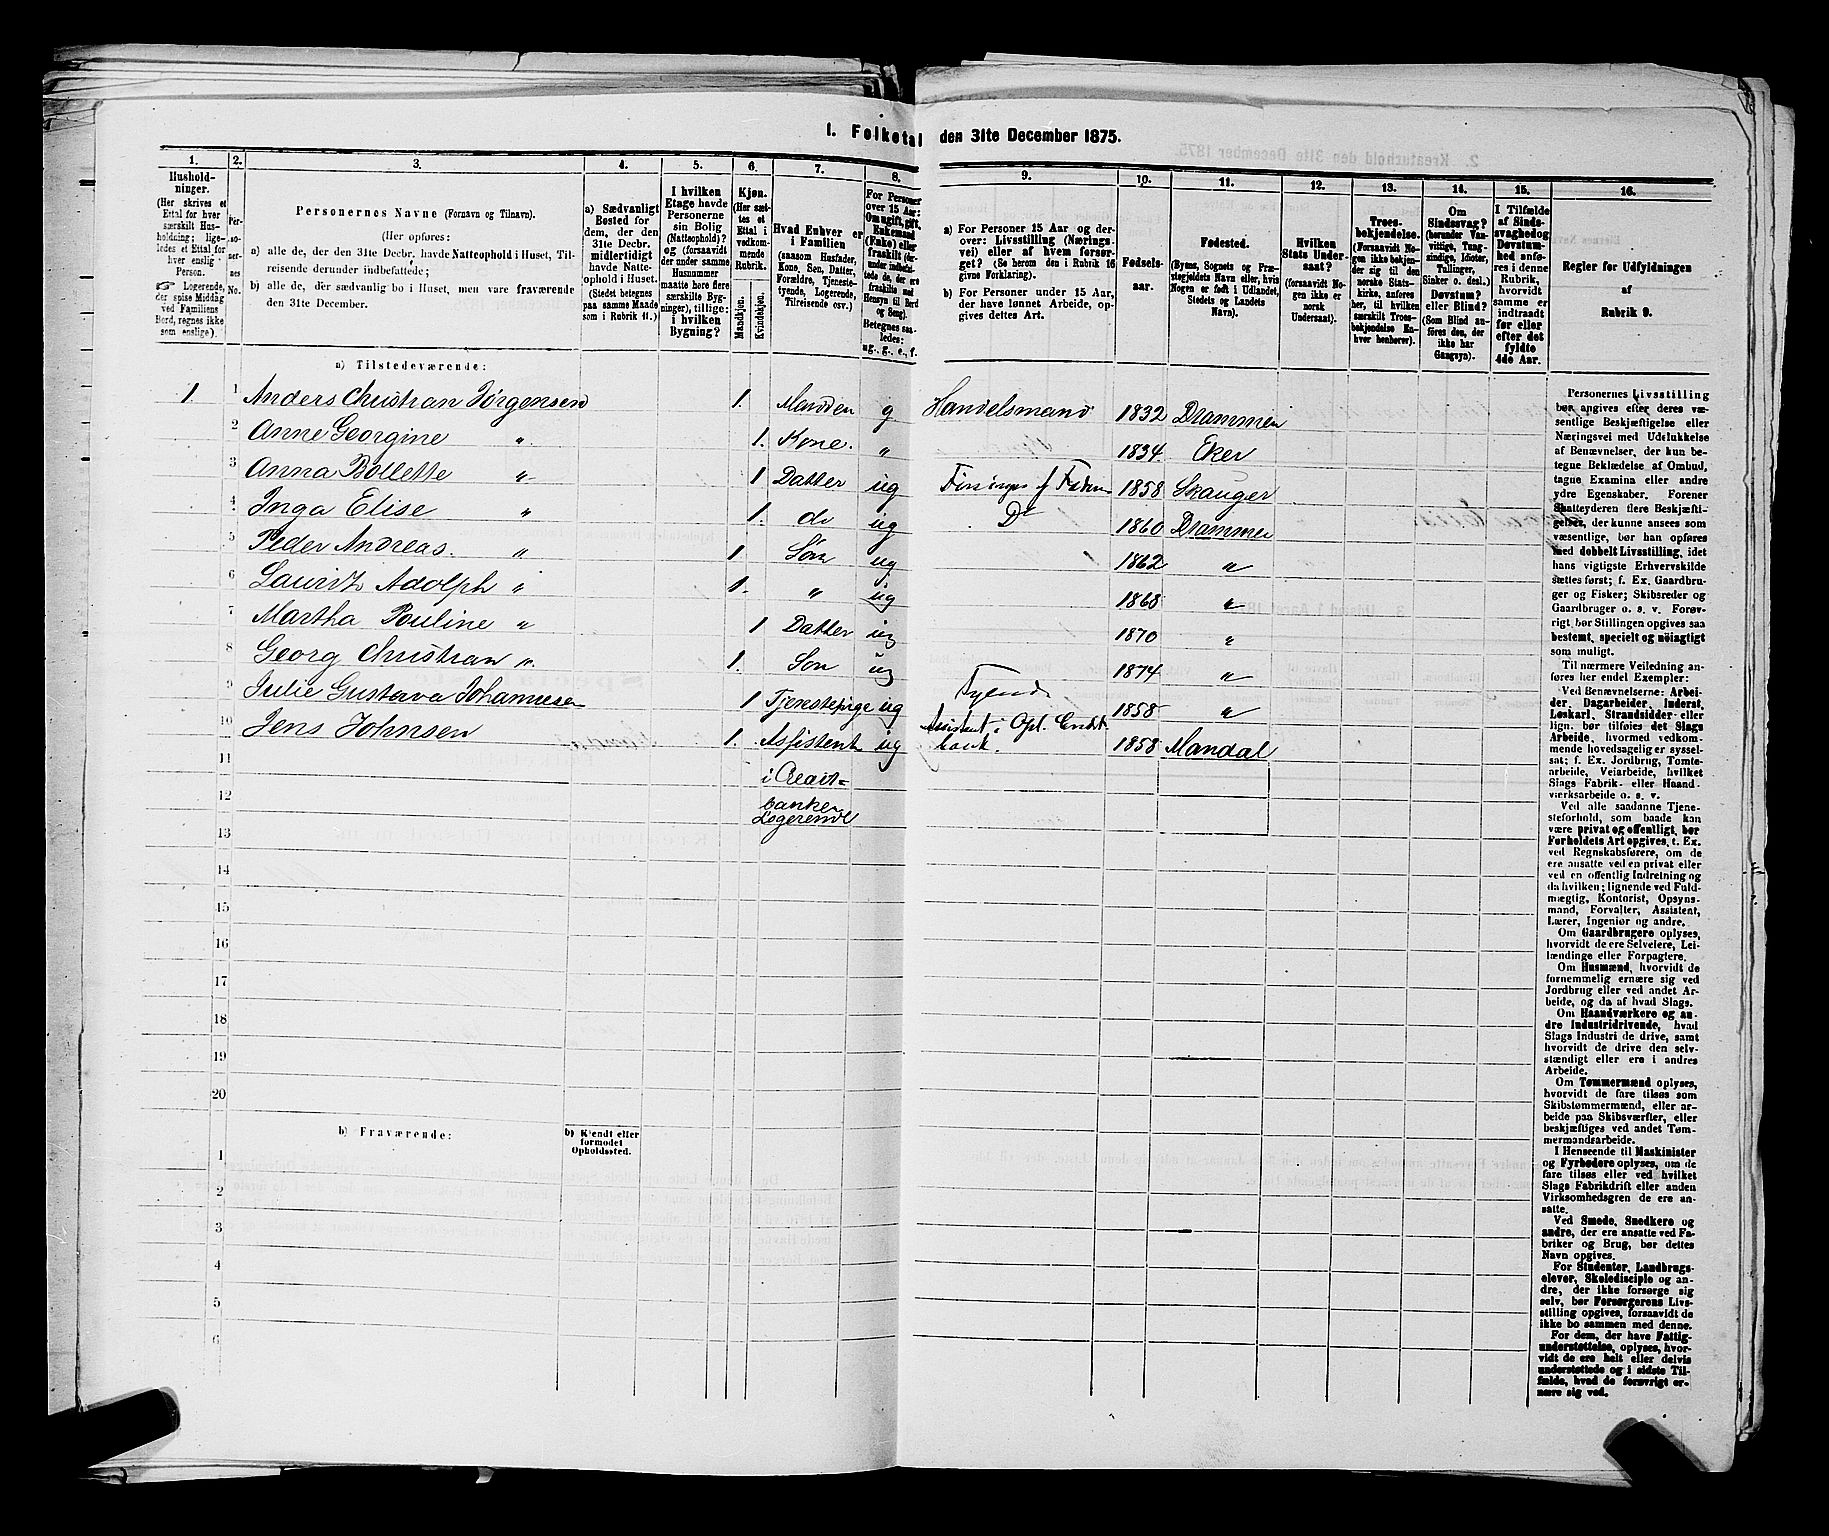 1. Folketal den 31te December 1875.
1. 2. 3. 4. 5. 6. 7. 8. 9. 10. 11. 12. 13. 14. 15. 16.
Husholdninger.
(Her skrives et
Ettal for hver
særskilt Husholdning;
ligeledes et Ettal for
hver enslig
Person.
Logerende,
der spise Middag
ved Familiens
Bord, regnes ikke
som enslige.)
Personernes No.
Personernes Navne (Fornavn og Tilnavn).
(Her opføres:
a) alle de, der den 31te Decbr. havde Natteophold i Huset, Tilreisende derunder indbefattede;
b) alle de, der sædvanlig bo i Huset, men vare fraværende
den 31te December.
a) Sædvanligt
Bosted for
dem, der den
31te Decbr.
midlertidigt
havde Natteophold
i Huset.
(Stedet betegnes
paa samme Maade
som i Rubrik 11.)
I hvilken
Etage havde
Personerne
sin Bolig
(Natteophold)?
og (forsaavidt
der under samme
Husnummer
maatte høre flere
særskilte Bygninger),
tillige:
i hvilken
Bygning?
Kjøn.
(Her sættes
et
Ettal i
vedkommende
Rubrik.
Mandkjøn.
Kvindekjøn.
Hvad Enhver er
i Familien
(saasom Husfader,
Kone, Søn, Datter,
Forældre, Tjenestetyende,
Logerende,
Tilreisende osv.)
For Personer
over 15 Aar:
Om ugift, gift,
Enkemand
(Enke) eller
fraskilt (derunder
indbefattede
de, der ere
fraskilte med
Hensyn til Bord
og Seng).
Betegnes saaledes:
ug., g., e., f.
a) For Personer 15 Aar og derover:
Livsstilling (Næringsvei)
eller af hvem forsørget?
(Se herom den i Rubrik 16
givne Forklaring).
b) For Personer under 15 Aar,
der have lønnet Arbeide, opgives
dettes Art.
Fødselsaar.
Fødested.
(Byens, Sognets og Præstegjeldets
Navn eller, hvis
Nogen er født i Udlandet,
Stedets og Landets
Navn).
Hvilken
Stats Undersaat?
(forsaavidt Nogen
ikke er
norsk
Undersaat).
Troesbekjendelse.
(Forsaavidt Nogen
ikke bekjender
sig til den
norske Statskirke,
anføres
her, til hvilken
særskilt Troesbekjendelse
Enhver
henhører).
Om
Sindssvag?
(herunder Vanvittige,
Tungsindige,
Idioter,
Tullinger,
Sinker o. desl.)
Døvstum?
eller Blind?
(Som Blind anføres
den, der
ikke har
Gangsyn).
I Tilfælde
af Sindssvaghed og
Døvstumhed
anføres
i denne
Rubrik,
hvorvidt
samme er
indtraadt
før eller
efter det
fyldte
4de Aar.
Regler for Udfyldningen
af
Rubrik 9.
a) Tilstedeværende:
1 1 Anders Christian Jørgensen 1. Manden g Handelsmand 1832 Drammen
2 Anne Georgine " 1. Kone. " 1834 Eker
3 Anna Bollette " 1 Datter ug Forsørges af Faderen 1858 Skauger
4 Inga Elise " 1. do ug Do 1860 Drammen
5 Peder Andreas. " 1. Søn ug 1862 "
6 Lauritz Adolph " 1. " ug 1868 "
7 Martha Pouline " 1 Datter ug 1870 "
8 Georg Christian " 1. Søn ug 1874 "
9 Julie Gustava Johannesen 1 Tjenestepige ug Tyende 1858 "
10 Jens Johnsen 1. Assistent ug Assistent i Opl. Credit bank. 1858 Mandal
11 i Credit=
12 banken
Logerende
13
14
15
16
17
18
19
20
b) Fraværende:
b) Kjendt eller
formodet
Opholdssted.
1
2
3
4
5
6
Personernes Livsstilling
bør angives efter deres væsentlige
Beskjæftigelse eller
Næringsvei med Udelukkelse
af Benævnelser, der kun betegne
Beklædelse af Ombud,
tagne Examina eller andre
ydre Egenskaber. Forener
Skatteyderen flere Beskjæftigelser,
der kunne ansees som
væsentlige, bør han opføres
med dobbelt Livsstilling, idet
hans vigtigste Erhvervskilde
sættes først; f. Ex. Gaardbruger
og Fisker; Skibsreder og
Gaardbruger o. s. v. Forøvrigt
bør Stillingen opgives saa
bestemt, specielt og nöiagtigt
som muligt.
Til nærmere Veiledning anføres
her endel Exempler:
Ved Benævnelserne: Arbeider,
Dagarbeider, Inderst,
Løskarl, Strandsidder eller
lign. bør tilføies det Slags
Arbeide, hvormed vedkommende
hovedsagelig er sysselsat;
f. Ex. Jordbrug, Tomtearbeide,
Veiarbeide, hvilket
Slags Fabrik- eller Haandværksarbeide
o. s. v.
Ved alle saadanne Tjenesteforhold,
som baade kan
være privat og offentligt, bør
Forholdets Art opgives, t. Ex.
ved Regnskabsførere, om de
ere ansatte ved en privat eller
ved en offentlig Indretning og
da hvilken; lignende ved Fuldmægtig,
Kontorist, Opsynsmand,
Forvalter, Assistent,
Lærer, Ingeniør og andre.
Om Gaardbrugere oplyses,
hvorvidt de ere Selveiere, Leilændinge
eller Forpagtere.
Om Husmænd, hvorvidt de
fornemmelig ernære sig ved
Jordbrug eller ved andet Arbeide,
og da af hvad Slags.
Om Haandværkere og andre
Industridrivende, hvad
Slags Industri de drive, samt
hvorvidt de drive den selvstændigt
eller ere i andres
Arbeide.
Om Tømmermænd oplyses,
hvorvidt de fare tilsøs som
Skibstømmermænd, eller arbeide
paa Skibsværfter, eller
beskjæftiges ved andet Tømmermandsarbeide.
I Henseende til Maskinister
og Fyrbødere oplyses, om de
fare tilsøs eller ved hvilket
Slags Fabrikdrift eller anden
Virksomhedsgren de ere ansatte.
Ved Smede, Snedkere og
andre, der ere ansatte ved Fabriker
og Brug, bør dettes
Navn opgives.
For Studenter, Landbrugselever,
Skoledisciple og andre,
der ikke forsørge sig
selv, bør Forsørgerens Livsstilling
opgives, forsaavidt de
ikke bo sammen med denne.
For dem, der have Fattigunderstøttelse,
oplyses, hvorvidt
de ere helt eller delvis
understøttede og i sidste Tilfælde,
hvad de forøvrigt ernære
sig ved.